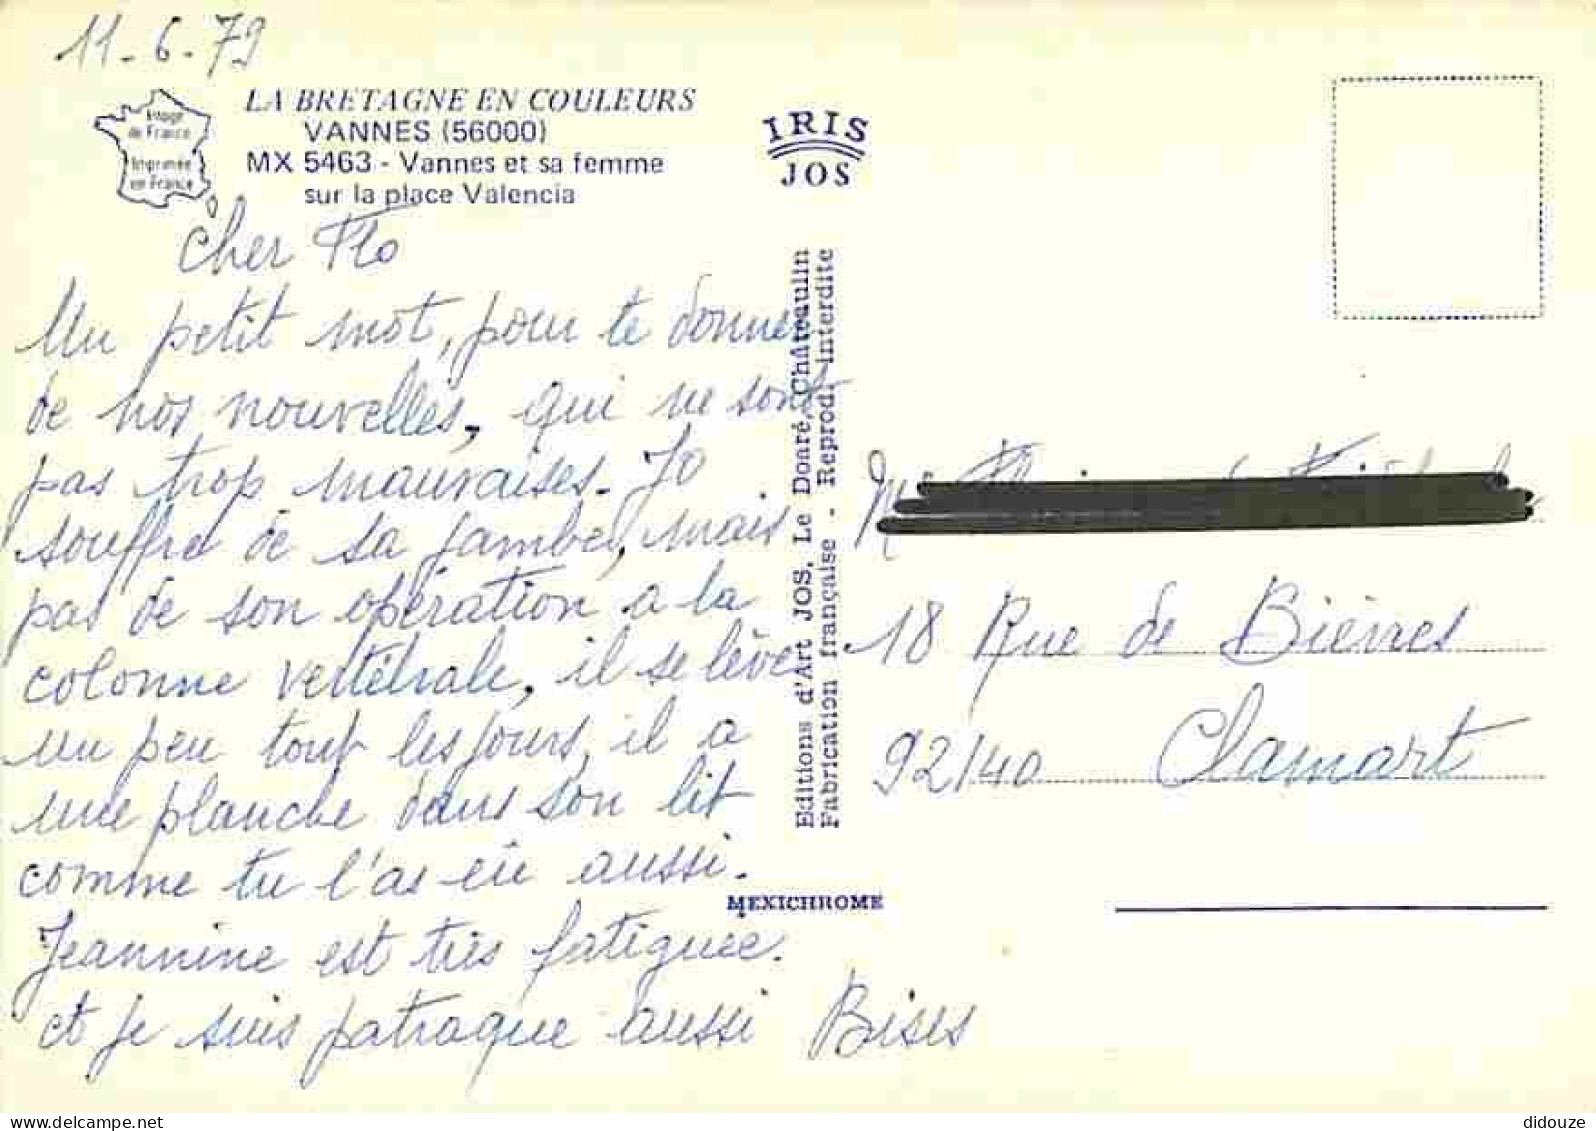 11-6-79
Image
de France
Imprimée
en France
LA BRETAGNE EN COULEURS
VANNES (56000)
MX 5463 - Vannes et sa femme
sur la place Valencia
IRIS
JOS
cher Flo
Un petit mot, pour te donner
de nos nouvelles, qui ne sont
pas trop mauvaises. Jo
souffre de sa jambe, mais
pas de son opération a la
colonne vertébrale, il se lève
un peu tout les jours, il a
une planche dans son lit
comme tu l'as eûe aussi.
Jeannine est très fatiguée.
et je suis patraque aussi Bises
Editions d'Art JOS, Le Doaré, Châteaulin
Fabrication française - Reprod. interdite
MEXICHROME
18 Rue de Bièvres
92140 Clamart
delcampe.net
didouze